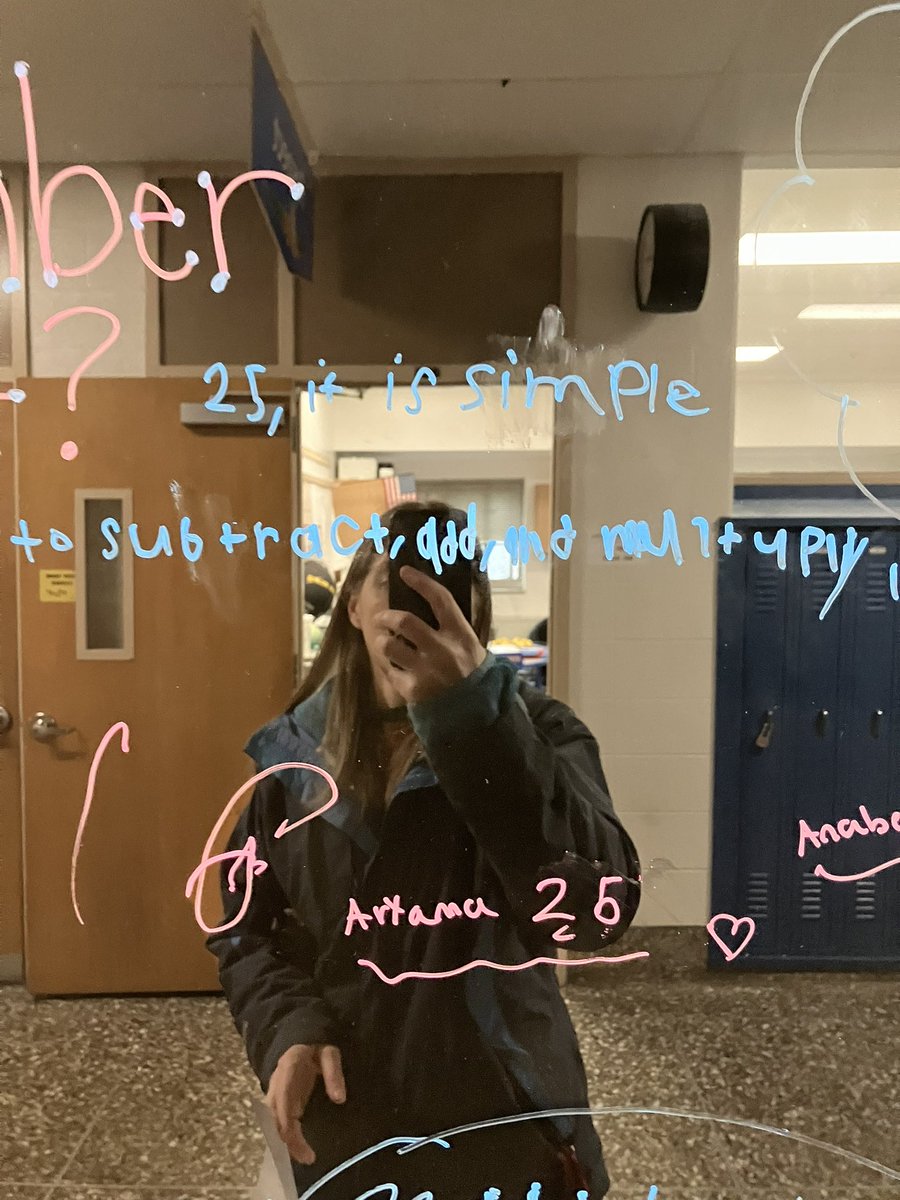 ber
?
25, it is simple
to subtract, add, and mult yply,
Aryama 25
Anabe